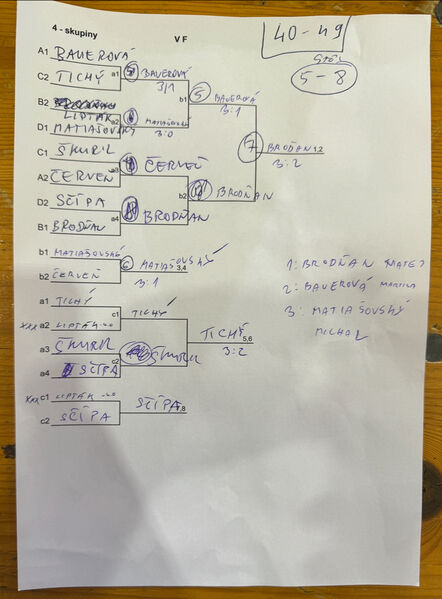 4 - skupiny
V F
40-49
STÔL
5-8
A1 BAUEROVÁ
C2 TICHÝ
a1 5 BAUEROVÁ
3:1
B2 LIPTÁK
D1 MATIAŠOVSKÝ
a2 MATIAŠOVSKÝ
3:0
b1 5 BAUEROVÁ
3:1
C1 ŠKURIL
A2 ČERVEŇ
a3 ČERVEŇ
D2 SČÍPA
B1 BRODŇAN
a4 BRODŇAN
b2 BRODŇAN
7 BRODŇAN 1,2
3:2
b1 MATIAŠOVSKÝ
b2 ČERVEŇ
6 MATIAŠOVSKÝ 3,4
3:1
a1 TICHÝ
xxx a2 LIPTÁK
c1 TICHÝ
a3 ŠKURIL
a4 SČÍPA
c2 ŠKURIL
TICHÝ 5,6
3:2
xxx c1 LIPTÁK
c2 SČÍPA
SČÍPA 7,8
1: BRODŇAN MATEJ
2: BAUEROVÁ MARTINA
3: MATIAŠOVSKÝ
MICHAL